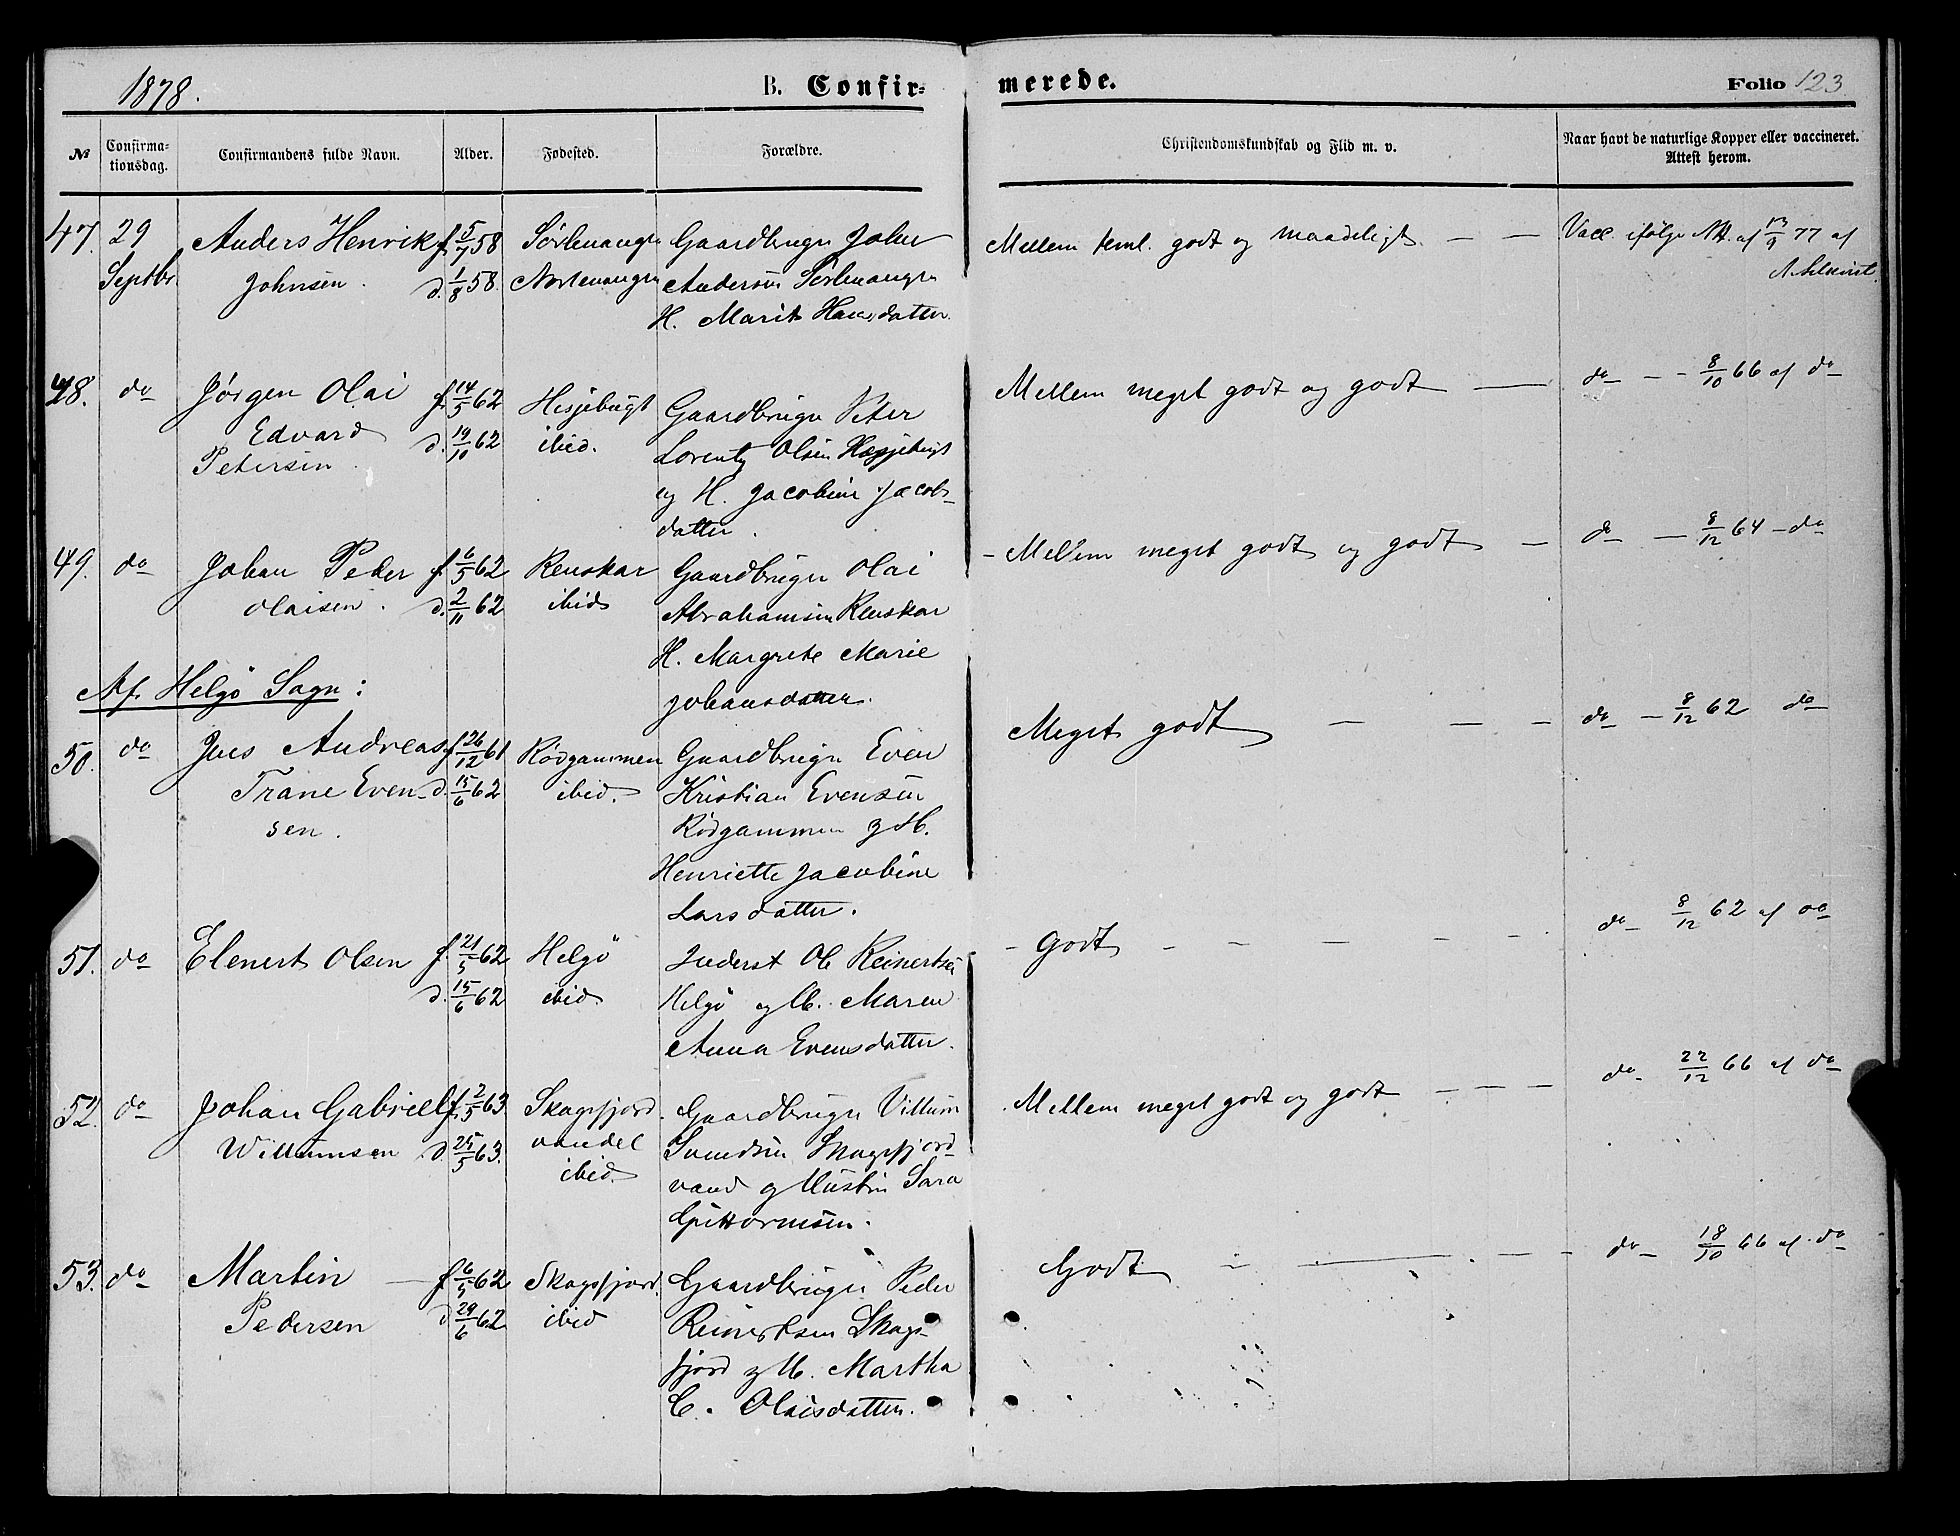 1878.
B. Confir=
merede.
Folio 123
№
Confirma=
tionsdag.
Confirmandens fulde Navn.
Alder.
Fødested.
Forældre.
Christendomskundskab og Flid m. v.
Naar havt de naturlige Kopper eller vaccineret.
Attest herom.
47. 29 Anders Henrik f. 5/7 58 Gaardbruger Johan Mellem teml. godt og maadeligt — — Vacc. ifølge Att. af 13/9 77 af
Septbr. Johnsen. d. 1/8 58. Andersen
H. Marit Hansdatter.
48. do Jørgen Olai f. 14/5 62 Hesjebugt Gaardbruger Peter Mellem meget godt og godt — do — - 8/10 66 af do
Edvard d. 19/10 62 ibid. Lorentz Olsen
Petersen. og H. Jacobine Jacobs-
datter.
49. do Johan Peder f. 6/5 62 Renskar Gaardbruger Olai - Mellem meget godt og godt — do — 8/12 64 - do
Olaisen. d. 2/11 62 ibid Abrahamsen Renskar
H. Margrete Marie
Johansdatter.
Af Helgö Sogn:
50. do Jens Andreas f. 26/12 61 Rödgammen Gaardbruger Even Meget godt — — — do — 8/12 62 do
Trane Even- d. 15/6 62 ibid. Kristian Evensen
sen. Rödgammen og H.
Henriette Jacobine
Larsdatter.
51. do Elenert Olsen f. 21/5 62 Helgö Inderst Ole Reinertsen - Godt - - - - - - do - 8/12 62 af do
d. 15/6 62 ibid. Helgö og H. Maren
Anna Evensdatter.
52. do Johan Gabriel f. 2/5 63 Skogsfjord- Gaardbruger Villum Mellem meget godt og godt - - - do - 22/12 66 af do
Willumsen d. 25/5 63. vandet Svendsen Skogsfjord
ibid. vand og Hustru Sara
Guttormsen.
53. do Martin — f. 6/5 62 Skogsfjord. Gaardbruger Peder Godt - — - - do - 18/10 66 af do
Pedersen d. 29/6 62 ibid Reinertsen Skogs-
fjord og H. Martha
C. Olaisdatter.